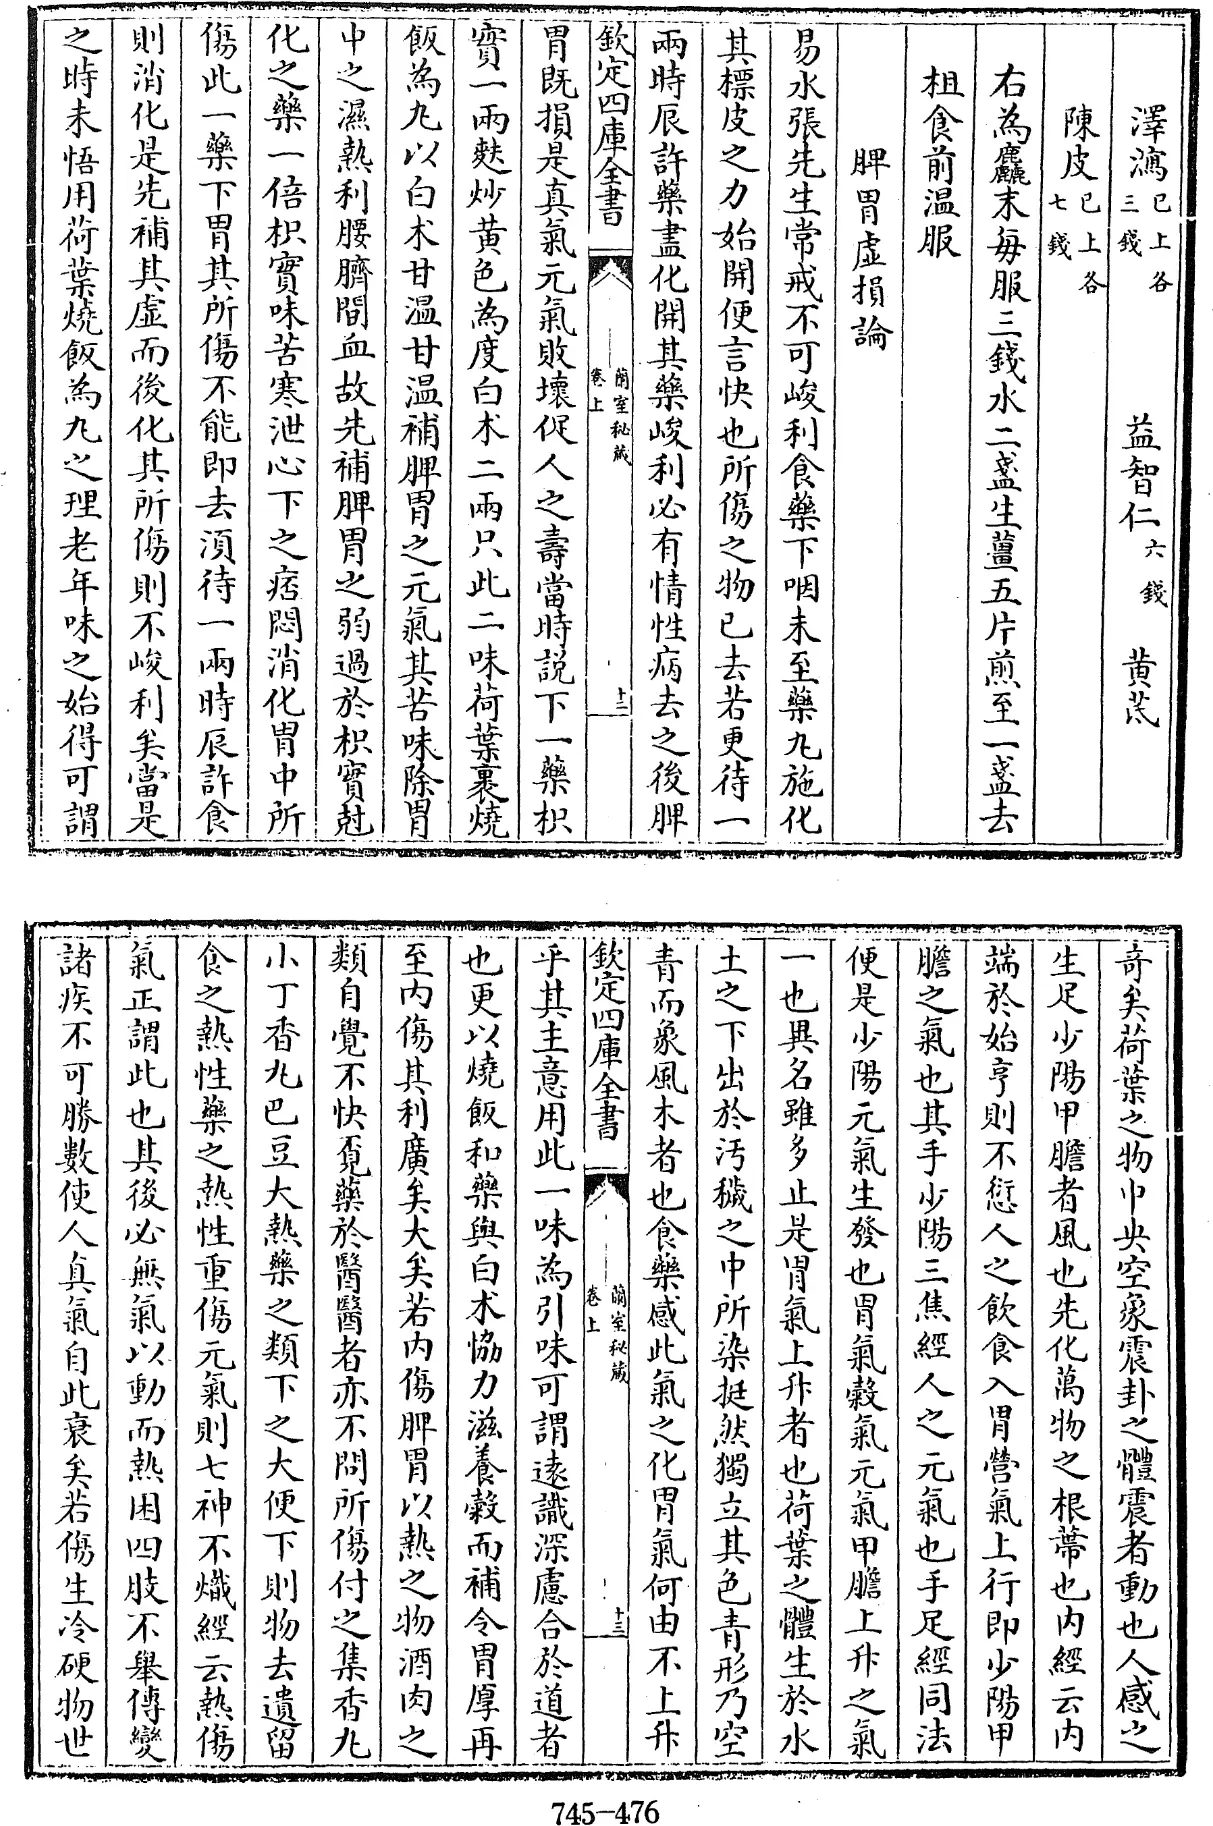 澤瀉已上各三錢　益智仁六錢　黄芪
陳皮已上各七錢
右為麤末每服三錢水二盞生薑五片煎至一盞去
柤食前温服
脾胃虚損論
易水張先生常戒不可峻利食藥下咽未至藥丸施化
其標皮之力始開便言快也所傷之物已去若更待一
兩時辰許藥盡化開其藥峻利必有情性病去之後脾
欽定四庫全書
蘭室秘藏
卷上
十三
胃既損是真氣元氣敗壞促人之壽當時説下一藥枳
實一兩麩炒黄色為度白术二兩只此二味荷葉裹燒
飯為丸以白术甘温甘温補脾胃之元氣其苦味除胃
中之濕熱利腰臍間血故先補脾胃之弱過於枳實尅
化之藥一倍枳實味苦寒泄心下之痞悶消化胃中所
傷此一藥下胃其所傷不能即去湏待一兩時辰許食
則消化是先補其虚而後化其所傷則不峻利矣當是
之時未悟用荷葉燒飯為丸之理老年味之始得可謂
奇矣荷葉之物中央空象震卦之體震者動也人感之
生足少陽甲膽者風也先化萬物之根蔕也内經云内
端於始亨則不愆人之飲食入胃營氣上行即少陽甲
膽之氣也其手少陽三焦經人之元氣也手足經同法
便是少陽元氣生發也胃氣穀氣元氣甲膽上升之氣
一也異名雖多止是胃氣上升者也荷葉之體生於水
土之下出於汚穢之中所染挺然獨立其色青形乃空
青而象風木者也食藥感此氣之化胃氣何由不上升
欽定四庫全書
蘭室秘藏
卷上
十三
乎其主意用此一味為引味可謂遠識深慮合於道者
也更以燒飯和藥與白术協力滋養穀而補令胃厚再
至内傷其利廣矣大矣若内傷脾胃以熱之物酒肉之
類自覺不快覔藥於醫醫者亦不問所傷付之集香丸
小丁香丸巴豆大熱藥之類下之大便下則物去遺留
食之熱性藥之熱性重傷元氣則七神不熾經云熱傷
氣正謂此也其後必無氣以動而熱困四肢不舉傳變
諸疾不可勝數使人真氣自此衰矣若傷生冷硬物世
745-476